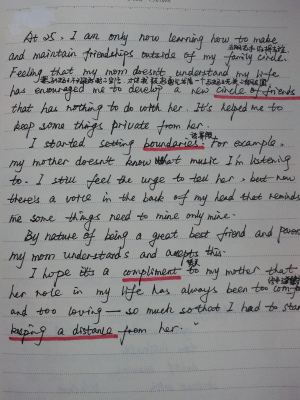 At 25, I am only now learning how to make
and maintain friendships outside of my family circle.
Feeling that my mom doesn't understand my life
has encouraged me to develop a new circle of friends
that has nothing to do with her. It's helped me to
keep some things private from her.
I started setting boundaries. For example,
my mother doesn't know what music I'm listening
to. I still feel the urge to tell her, but now
there's a voice in the back of my head that reminds
me some things need to mine only mine.
By nature of being a great best friend and
my mom understands and accepts this.
I hope it's a compliment to my mother that
her role in my life has always been too
and too loving — so much so that I had to
keeping a distance from her.